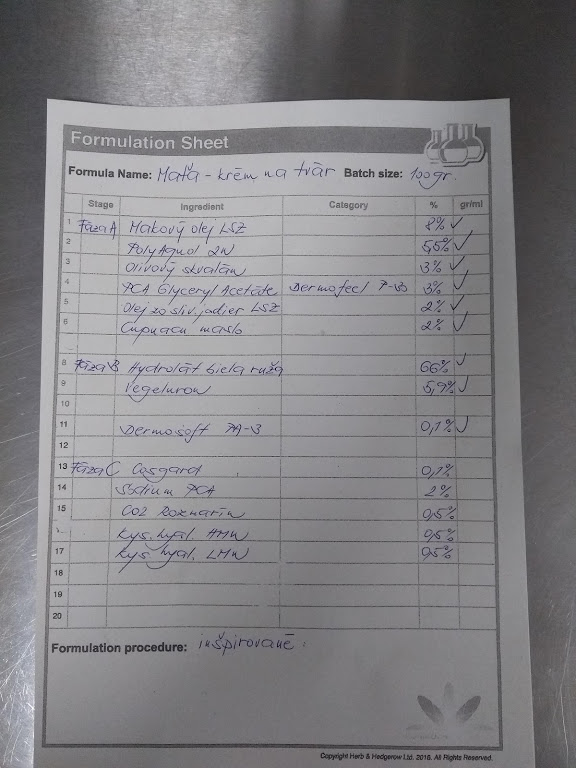 Formulation Sheet
Formula Name: Maťa - krém na tvár Batch size: 100gr.
Stage Ingredient Category % gr/ml
1 Fáza A Makový olej LSZ 8% ✓
2 PolyAquol 2W 5,5% ✓
3 Olivový skvalán 3% ✓
4 PCA Glyceryl Acetáde Dermofeel P-30 3% ✓
5 Olej zo sliv. jadier LSZ 2% ✓
6 Cupuacu maslo 2% ✓
8 Fáza B Hydrolát biela ruža 66% ✓
9 Vegeluron 5,9% ✓
10
11 Dermosoft PA-3 0,1% ✓
12
13 Fáza C Cosgard 0,1%
14 Sodium PCA 2%
15 CO2 Rozmarín 0,5%
kys. hyal. HMW 0,5%
17 kys. hyal. LMW 0,5%
18
19
20
Formulation procedure: inšpirované :
Copyright Herb & Hedgerow Ltd. 2016. All Rights Reserved.